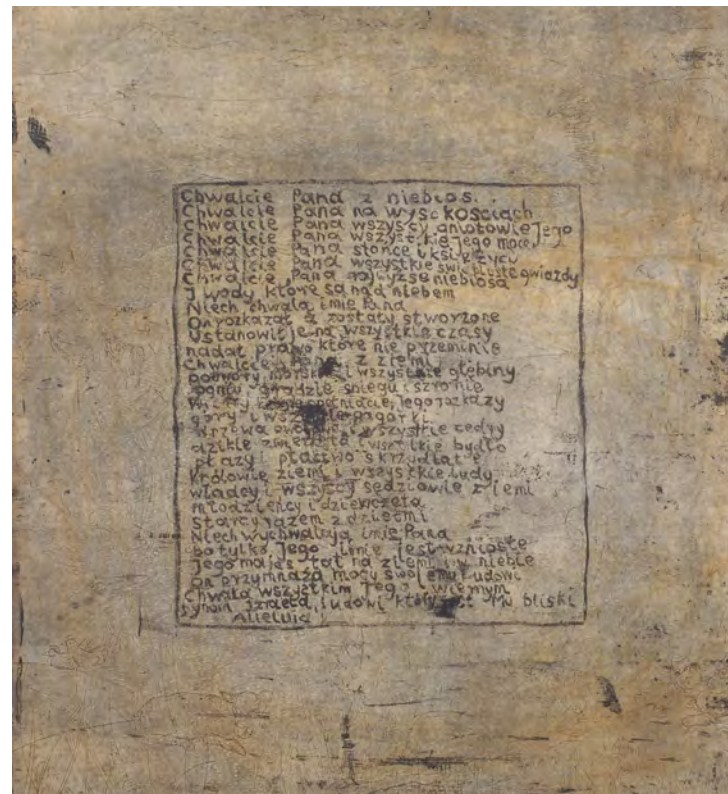 Chwalcie Pana z niebios..
Chwalcie Pana na wysokościach
Chwalcie Pana wszyscy aniołowie Jego
Chwalcie Pana wszystkie Jego moce
Chwalcie Pana słońce i księżycu
Chwalcie Pana wszystkie świecliste gwiazdy
Chwalcie Pana najwyższe niebiosa
i wody które są nad niebem
Niech chwalą imię Pana
On rozkazał a zostały stworzone
Ustanowił je na wszystkie czasy
nadał prawo które nie przeminie
Chwalcie Pana z ziemi
potwory morskie i wszystkie głębiny
ogniu gradzie śniegu i szronie
Jego rozkazy
góry i wszystkie pagórki
drzewa i wszystkie cedry
dzikie zwierzęta i wszelkie bydło
płazy i ptactwo skrzydlate
Królowie ziemi i wszystkie ludy
władcy i wszyscy sędziowie ziemi
młodzieńcy i dziewczęta
starcy razem z dziećmi
Niech wychwalają imię Pana
bo tylko Jego imię jest wzniosłe
Jego majestat na ziemi i w niebie
On przymnaża mocy swojemu ludowi
Chwała wszystkim Jego wiernym
synom Izraela, ludowi który jest Mu bliski
Alleluia